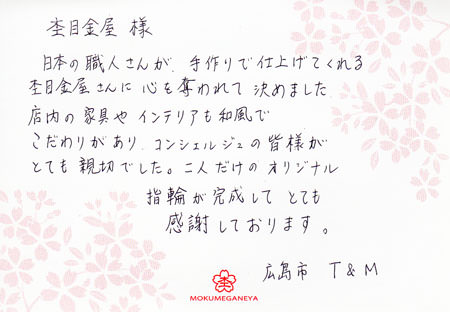 杢目金屋 様
日本の職人さんが、手作りで仕上げてくれる
杢目金屋さんに 心を奪われて 決めました
店内の家具や インテリアも和風で
こだわりがあり、コンシェルジュの皆様が
とても 親切でした。二人だけの オリジナル
指輪が完成して とても
感謝しております。
広島市 T & M
杢
MOKUMEGANEYA